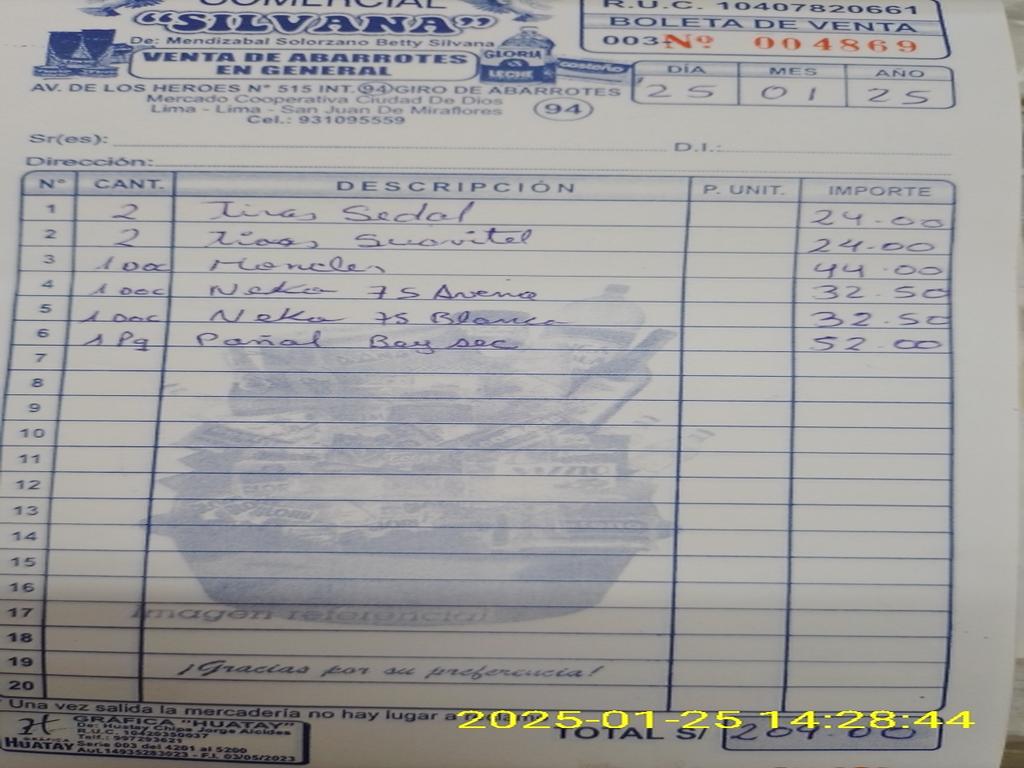 COMERCIAL
"SILVANA"
De: Mendizabal Solorzano Betty Silvana
VENTA DE ABARROTES
EN GENERAL
GLORIA
LECHE
costeño
AV. DE LOS HEROES N° 515 INT. 94 GIRO DE ABARROTES
Mercado Cooperativa Ciudad De Dios
Lima - Lima - San Juan De Miraflores
Cel.: 931095559
94
R.U.C. 10407820661
BOLETA DE VENTA
003 Nº 004869
DÍA MES AÑO
25 01 25
Sr(es): D.I.:
Dirección:
N° CANT. DESCRIPCIÓN P. UNIT. IMPORTE
1 2 Tiras Sedal 24.00
2 2 Tiras Suavitel 24.00
3 44.00
4 Neko 75 Avena 32.50
5 Neko 75 Blanco 32.50
6 1 Pq Pañal Baysec 52.00
7
8
9
10
11
12
13
14
15
16
17 Imagen referencial
18
19 ¡Gracias por su preferencia!
20
Una vez salida la mercadería no hay lugar a
2025-01-25 14:28:44
HUATAY
GRÁFICA "HUATAY"
De: Huatay Chipa Jorge Alcides
Serie 003 del 4201 al 5200
F.I. 03/05/2023
TOTAL S/ 209.00